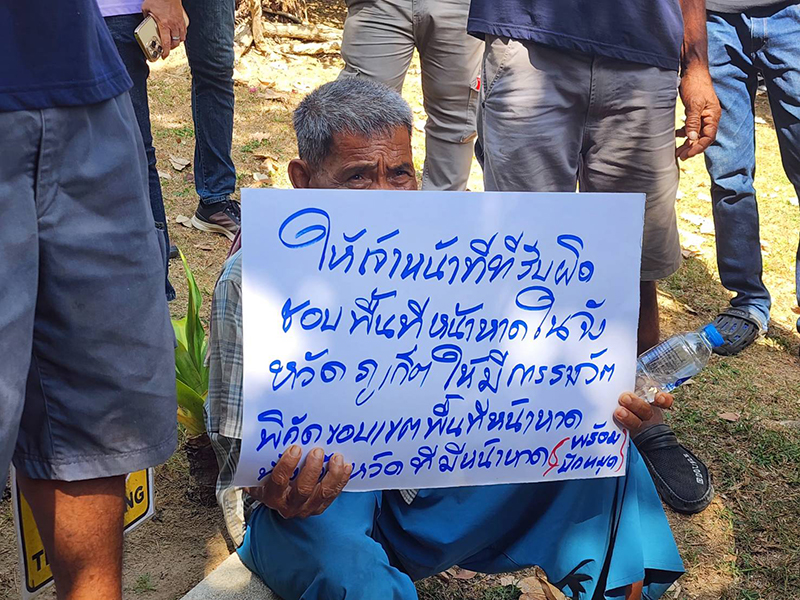 ให้เจ้าหน้าที่ที่รับผิด
ชอบ พื้นที่ หน้าหาด ใน จัง
หวัด ภูเก็ต ให้ มี การรางวัด
พิกัด ขอบเขต พื้นที่หน้าหาด
จังหวัด ที่ มี หน้าหาด (พร้อม
ปักหมุด)
NG